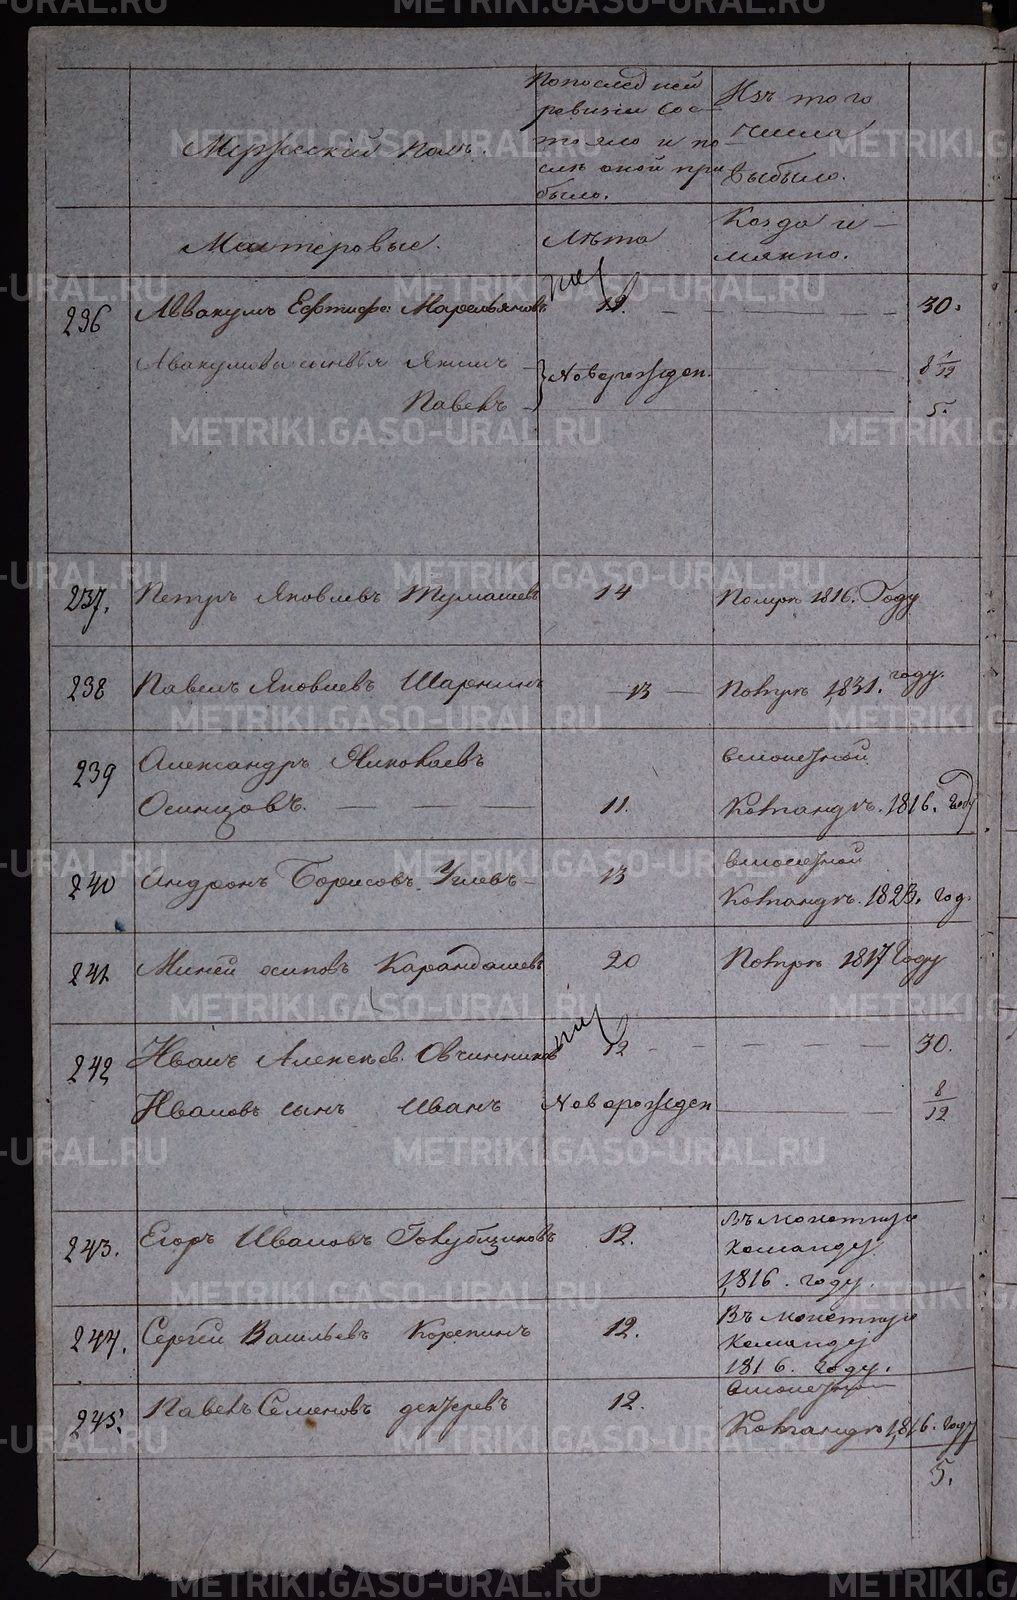 Мужескій полъ.
По последней ревизіи сос-
тояло и по
слѣ оной при
было.
Изъ того
числа
выбыло.
Мастеровые.
Лѣта
Когда и-
мянно.
236 Аввакумъ Ефтифе: Марельяновъ 12. 30.
Авакумовы сыновья Якимъ Новорожден. 8 1/12
Павелъ 5.
237. Петръ Яковлевъ Тумашевъ 14 Померъ 1816. Году
238 Павелъ Яковлевъ Шаркинъ 13 Померъ 1831. году.
239 Александръ Яковлевъ
Осинцовъ. 11. вмонетной
Командѣ. 1816. году
240 Андронъ Борисовъ Углевъ 13 вмонетной
Командѣ. 1823. год.
241 Миней осиповъ Карандашевъ 20 Померъ 1817 Году
242 Иванъ Алексѣев. Овчинниковъ 12 30.
Ивановъ сынъ Иванъ Новорожден 8/12
243. Егоръ Ивановъ Голубчиковъ 12. Въ монетную
команду
1816. году.
244. Сергей Васильевъ Корепинъ 12. Въ монетную
команду
1816. году.
245. Павелъ Семеновъ дехтеревъ 12. вмонетной
Командѣ 1816. году
5.
METRIKI.GASO-URAL.RU